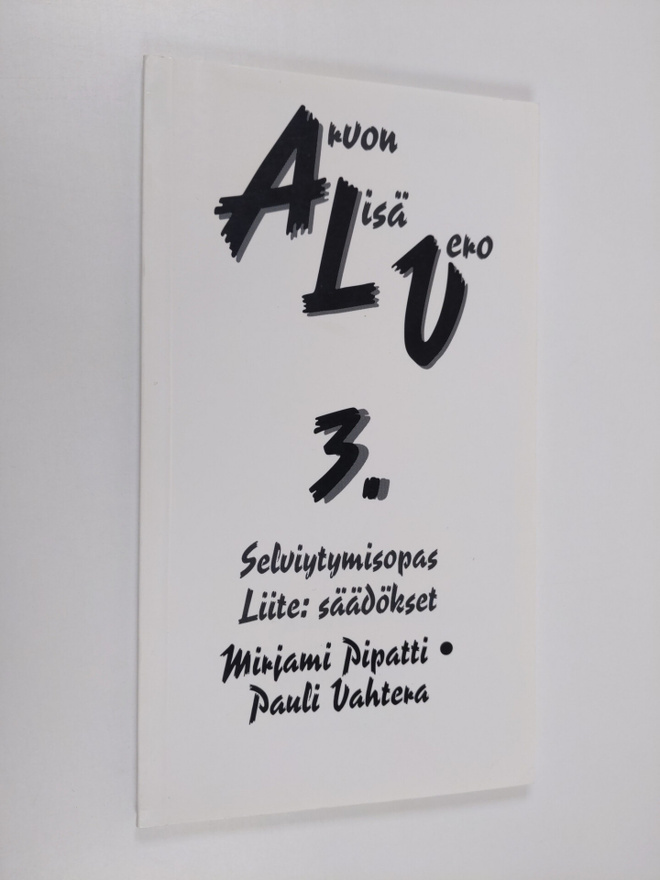 Arvon
Lisä
Vero
3.
Selviytymisopas
Liite: säädökset
Mirjami Pipatti •
Pauli Vahtera